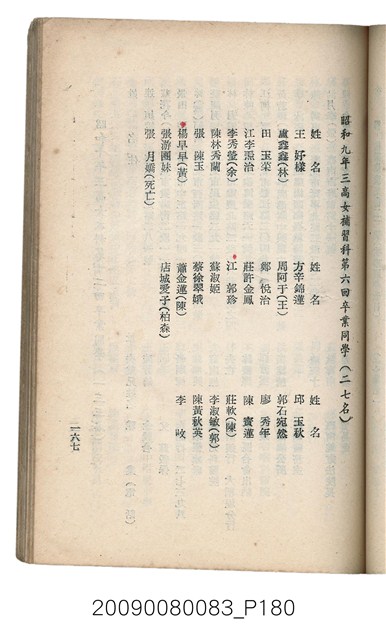 昭和九年三高女補習科第六回卒業同學（二七名）
姓名
王好樣
盧鑫鑫(林)
田玉菜
江李𤆬治
李秀瑩(余)
陳林秀蘭
張陳玉
楊早早(黃)
張游團妹
張月嬌(死亡)
姓名
方辛錦蓮
周阿于(王)
鄭悅治
莊許金鳳
江郭珍
蘇淑姬
蔡徐翠娥
蕭金連(陳)
店城愛子(柏森)
姓名
邱玉秋
郭石宛然
廖秀年
陳寶蓮
莊軟(陳)
李淑敏(郭)
陳黃秋英
李
一六七
20090080083_P180